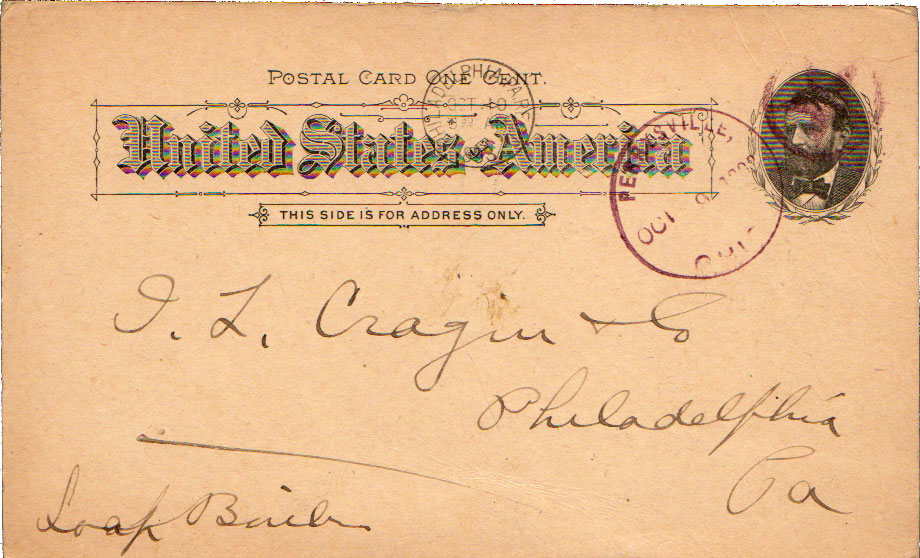 POSTAL CARD ONE CENT.
United States America
THIS SIDE IS FOR ADDRESS ONLY.
PHILADELPHIA, PA. REC'D
OCT 10
OCT 9
OHIO
I. L. Cragin & Co
Philadelphia
Pa
Soap